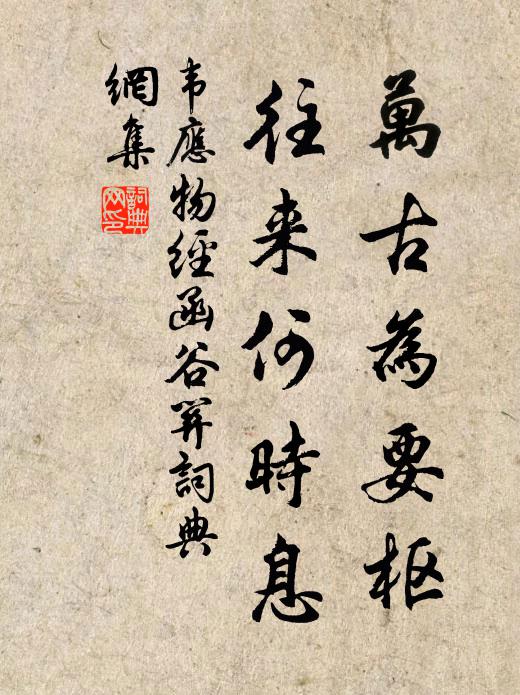 萬古為要枢
往来何時息
韦應物經函谷关詞典
網集
詞典
网印